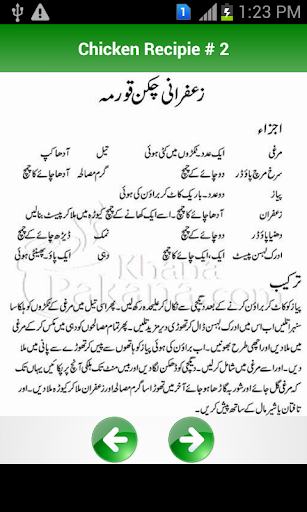 1:23 PM
Chicken Recipie # 2
زعفرانی چکن قورمہ
اجزاء
مرغی ایک عدد۔ ٹکڑوں میں کٹی ہوئی تیل آدھا کپ
سرخ مرچ پاؤڈر دو چائے کے چمچ گرم مصالحہ آدھا چائے کا چمچ
پیاز دو عدد۔ باریک کاٹ کر براؤن کی ہوئی
زعفران آدھا چائے کا چمچ۔ اسے ایک کھانے کے چمچ کیوڑہ میں ملا کر پیسٹ بنالیں
دھنیا پاؤڈر دو چائے کے چمچ نمک ڈیڑھ چائے کے چمچ
ادرک لہسن پیسٹ ایک چائے کا چمچ دہی ایک پاؤ۔ پھینٹی ہوئی
Khana Pakana.com
ترکیب
پیاز کو کاٹ کر براؤن کرنے کے بعد۔ دیگچی سے نکال کر علیحدہ رکھ لیں۔ پھر اسی تیل میں مرغی کے ٹکڑوں کو ہلکا سا
سنہرا تلیں اب اس میں ادرک لہسن ڈال کر تھوڑی دیر مزید تلیں۔ پھر اس میں تمام مصالحوں کو دہی میں مکس کر کے مرغی
میں ملا دیں اور اچھی طرح بھونیں۔ اب براؤن کی ہوئی پیاز کو پیس کر تھوڑے سے پانی میں ملا دیں
اور اسے مرغی میں شامل کر لیں۔ دیگچی میں ڈھکن لگا دیں اور بیس منٹ تک ہلکی آنچ پر پکائیں یہاں تک
کہ مرغی گل جائے اور شوربہ گاڑھا ہو جائے آخر میں تھوڑا سا گرم مصالحہ اور زعفران ملا کر چولہا بند کر دیں۔ اور
تافتان یا شیرمال کے ساتھ پیش کریں۔